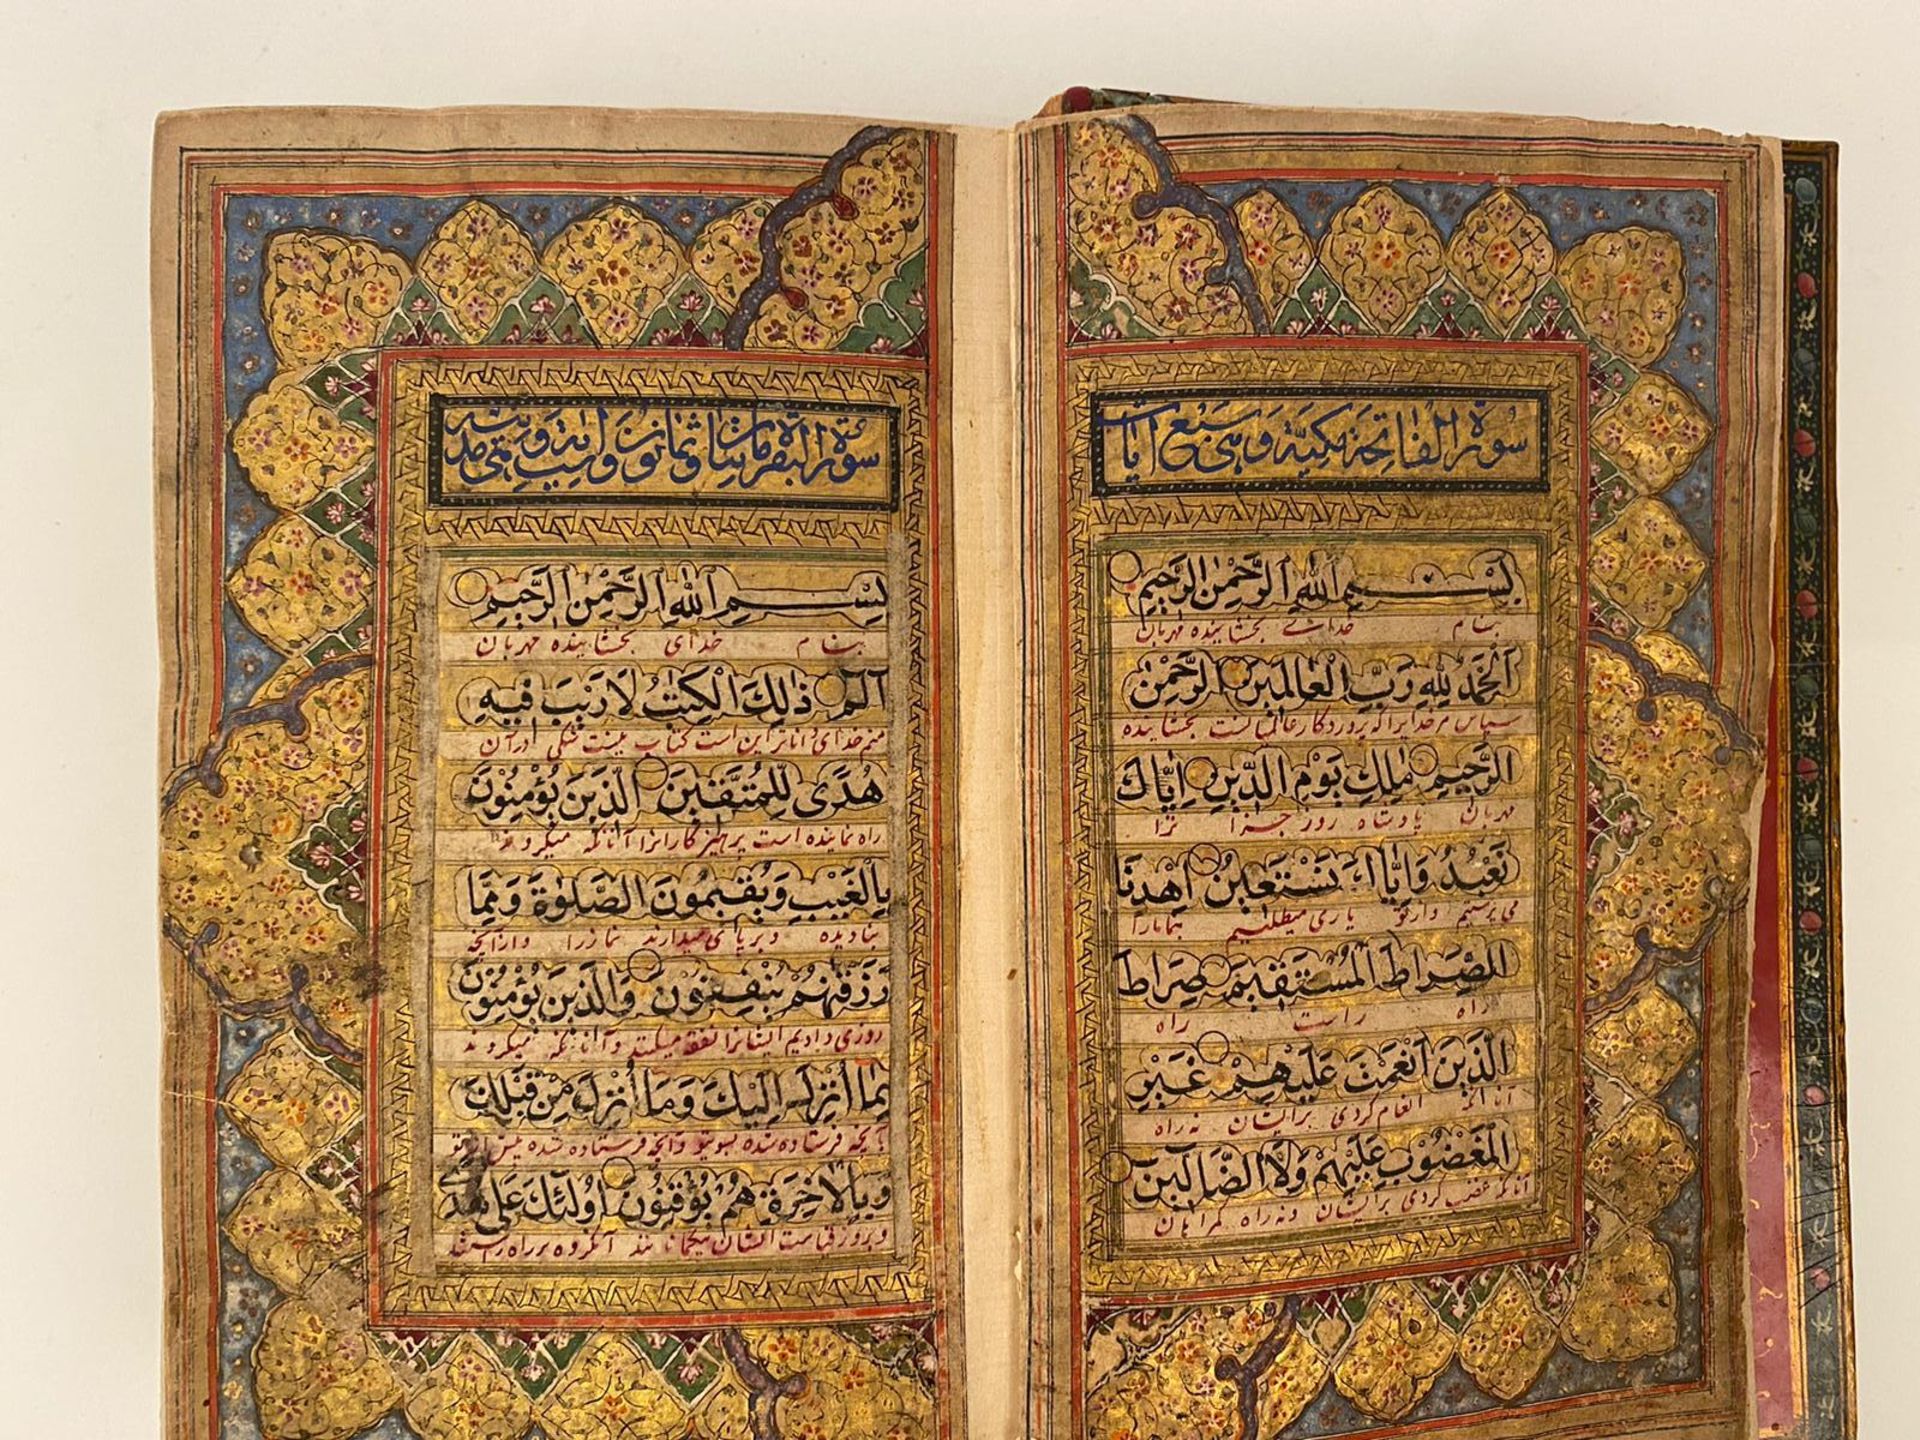 سورة الفاتحة مكية وهي سبع ايات
بِسْمِ ٱللهِ ٱلرَّحْمٰنِ ٱلرَّحِيمِ
بنام خدای بخشاینده مهربان
اَلْحَمْدُ لِلّٰهِ رَبِّ الْعَالَمِينَ الرَّحْمٰنِ
سپاس مر خدایرا که پروردگار عالمیانست بخشاینده
الرَّحِيمِ مٰلِكِ يَوْمِ الدِّينِ اِيَّاكَ
مهربان پادشاه روز جزا ترا
نَعْبُدُ وَاِيَّاكَ نَسْتَعِينُ اِهْدِنَا
می پرستیم و از تو یاری میطلبیم بنما مارا
الصِّرَاطَ الْمُسْتَقِيمَ صِرَاطَ
راه راست راه
الَّذِينَ اَنْعَمْتَ عَلَيْهِمْ غَيْرِ
آنانکه انعام کردی برایشان نه راه
الْمَغْضُوبِ عَلَيْهِمْ وَلَا الضَّالِّينَ
آنانکه غضب کردی برایشان و نه راه گمراهان
سورة البقرة مائتان وثمانون وست آية وهي مدنية
بِسْمِ ٱللهِ ٱلرَّحْمٰنِ ٱلرَّحِيمِ
بنام خدای بخشاینده مهربان
الٓمٓ ذٰلِكَ الْكِتٰبُ لَا رَيْبَ فِيهِ
منم خدای داناتر این است کتاب نیست شکی در آن
هُدًى لِلْمُتَّقِينَ الَّذِينَ يُؤْمِنُونَ
راه نماینده است پرهیزکارانرا آنانکه میگروند
بِالْغَيْبِ وَيُقِيمُونَ الصَّلٰوةَ وَمِمَّا
بنادیده و برپای میدارند نمازرا و از آنچه
رَزَقْنٰهُمْ يُنْفِقُونَ وَالَّذِينَ يُؤْمِنُونَ
روزی دادیم ایشانرا نفقه میکنند و آنانکه میگروند
بِمَا اُنْزِلَ اِلَيْكَ وَمَا اُنْزِلَ مِنْ قَبْلِكَ
بآنچه فرستاده شده بسوی تو و آنچه فرستاده شده پیش از تو
وَبِالْاٰخِرَةِ هُمْ يُوقِنُونَ اُولٰئِكَ عَلٰى هُدًى
و بروز قیامت ایشان بیگمانانند آنگروه بر راه راستند